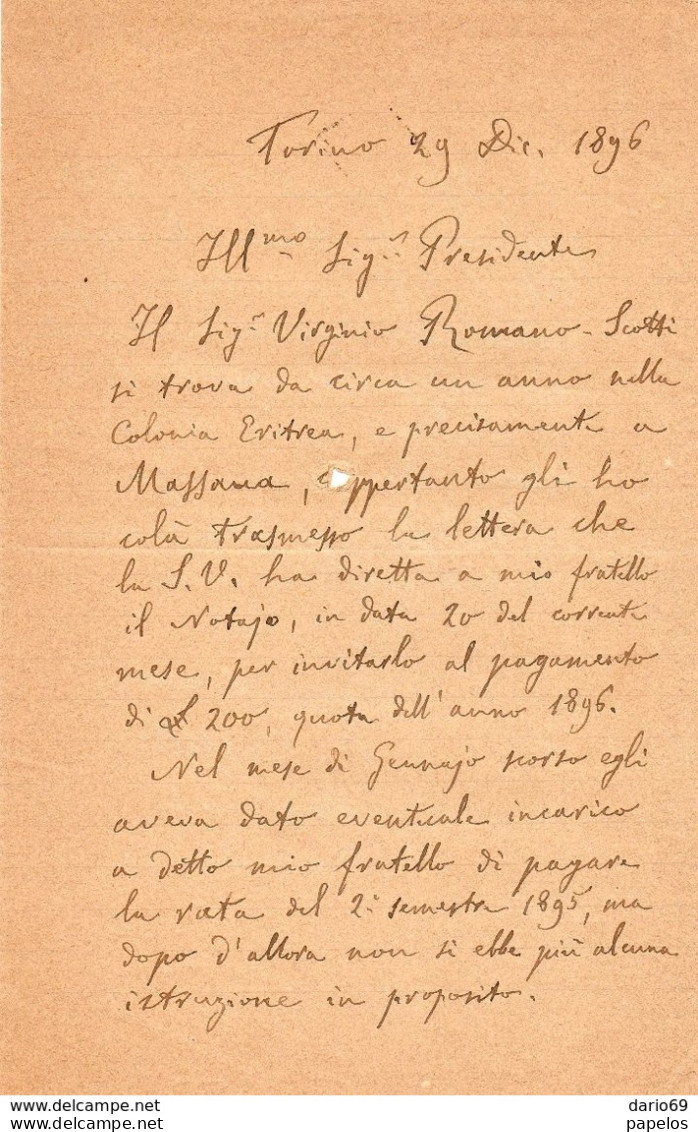 Torino 29 Dic. 1896
Ill.mo Sig.r Presidente
Il Sig.r Virginio Romano-Scotti
si trova da circa un anno nella
Colonia Eritrea, e precisamente a
Massaua, eppertanto gli ho
colà trasmesso la lettera che
la S.V. ha diretta a mio fratello
il Notajo, in data 20 del corrente
mese, per invitarlo al pagamento
di £ 200, quota dell'anno 1896.
Nel mese di Gennajo scorso egli
aveva dato eventuale incarico
a detto mio fratello di pagare
la rata del 2.° semestre 1895, ma
dopo d'allora non si ebbe più alcuna
istruzione in proposito.
papelos
papelos
dario69
papelos